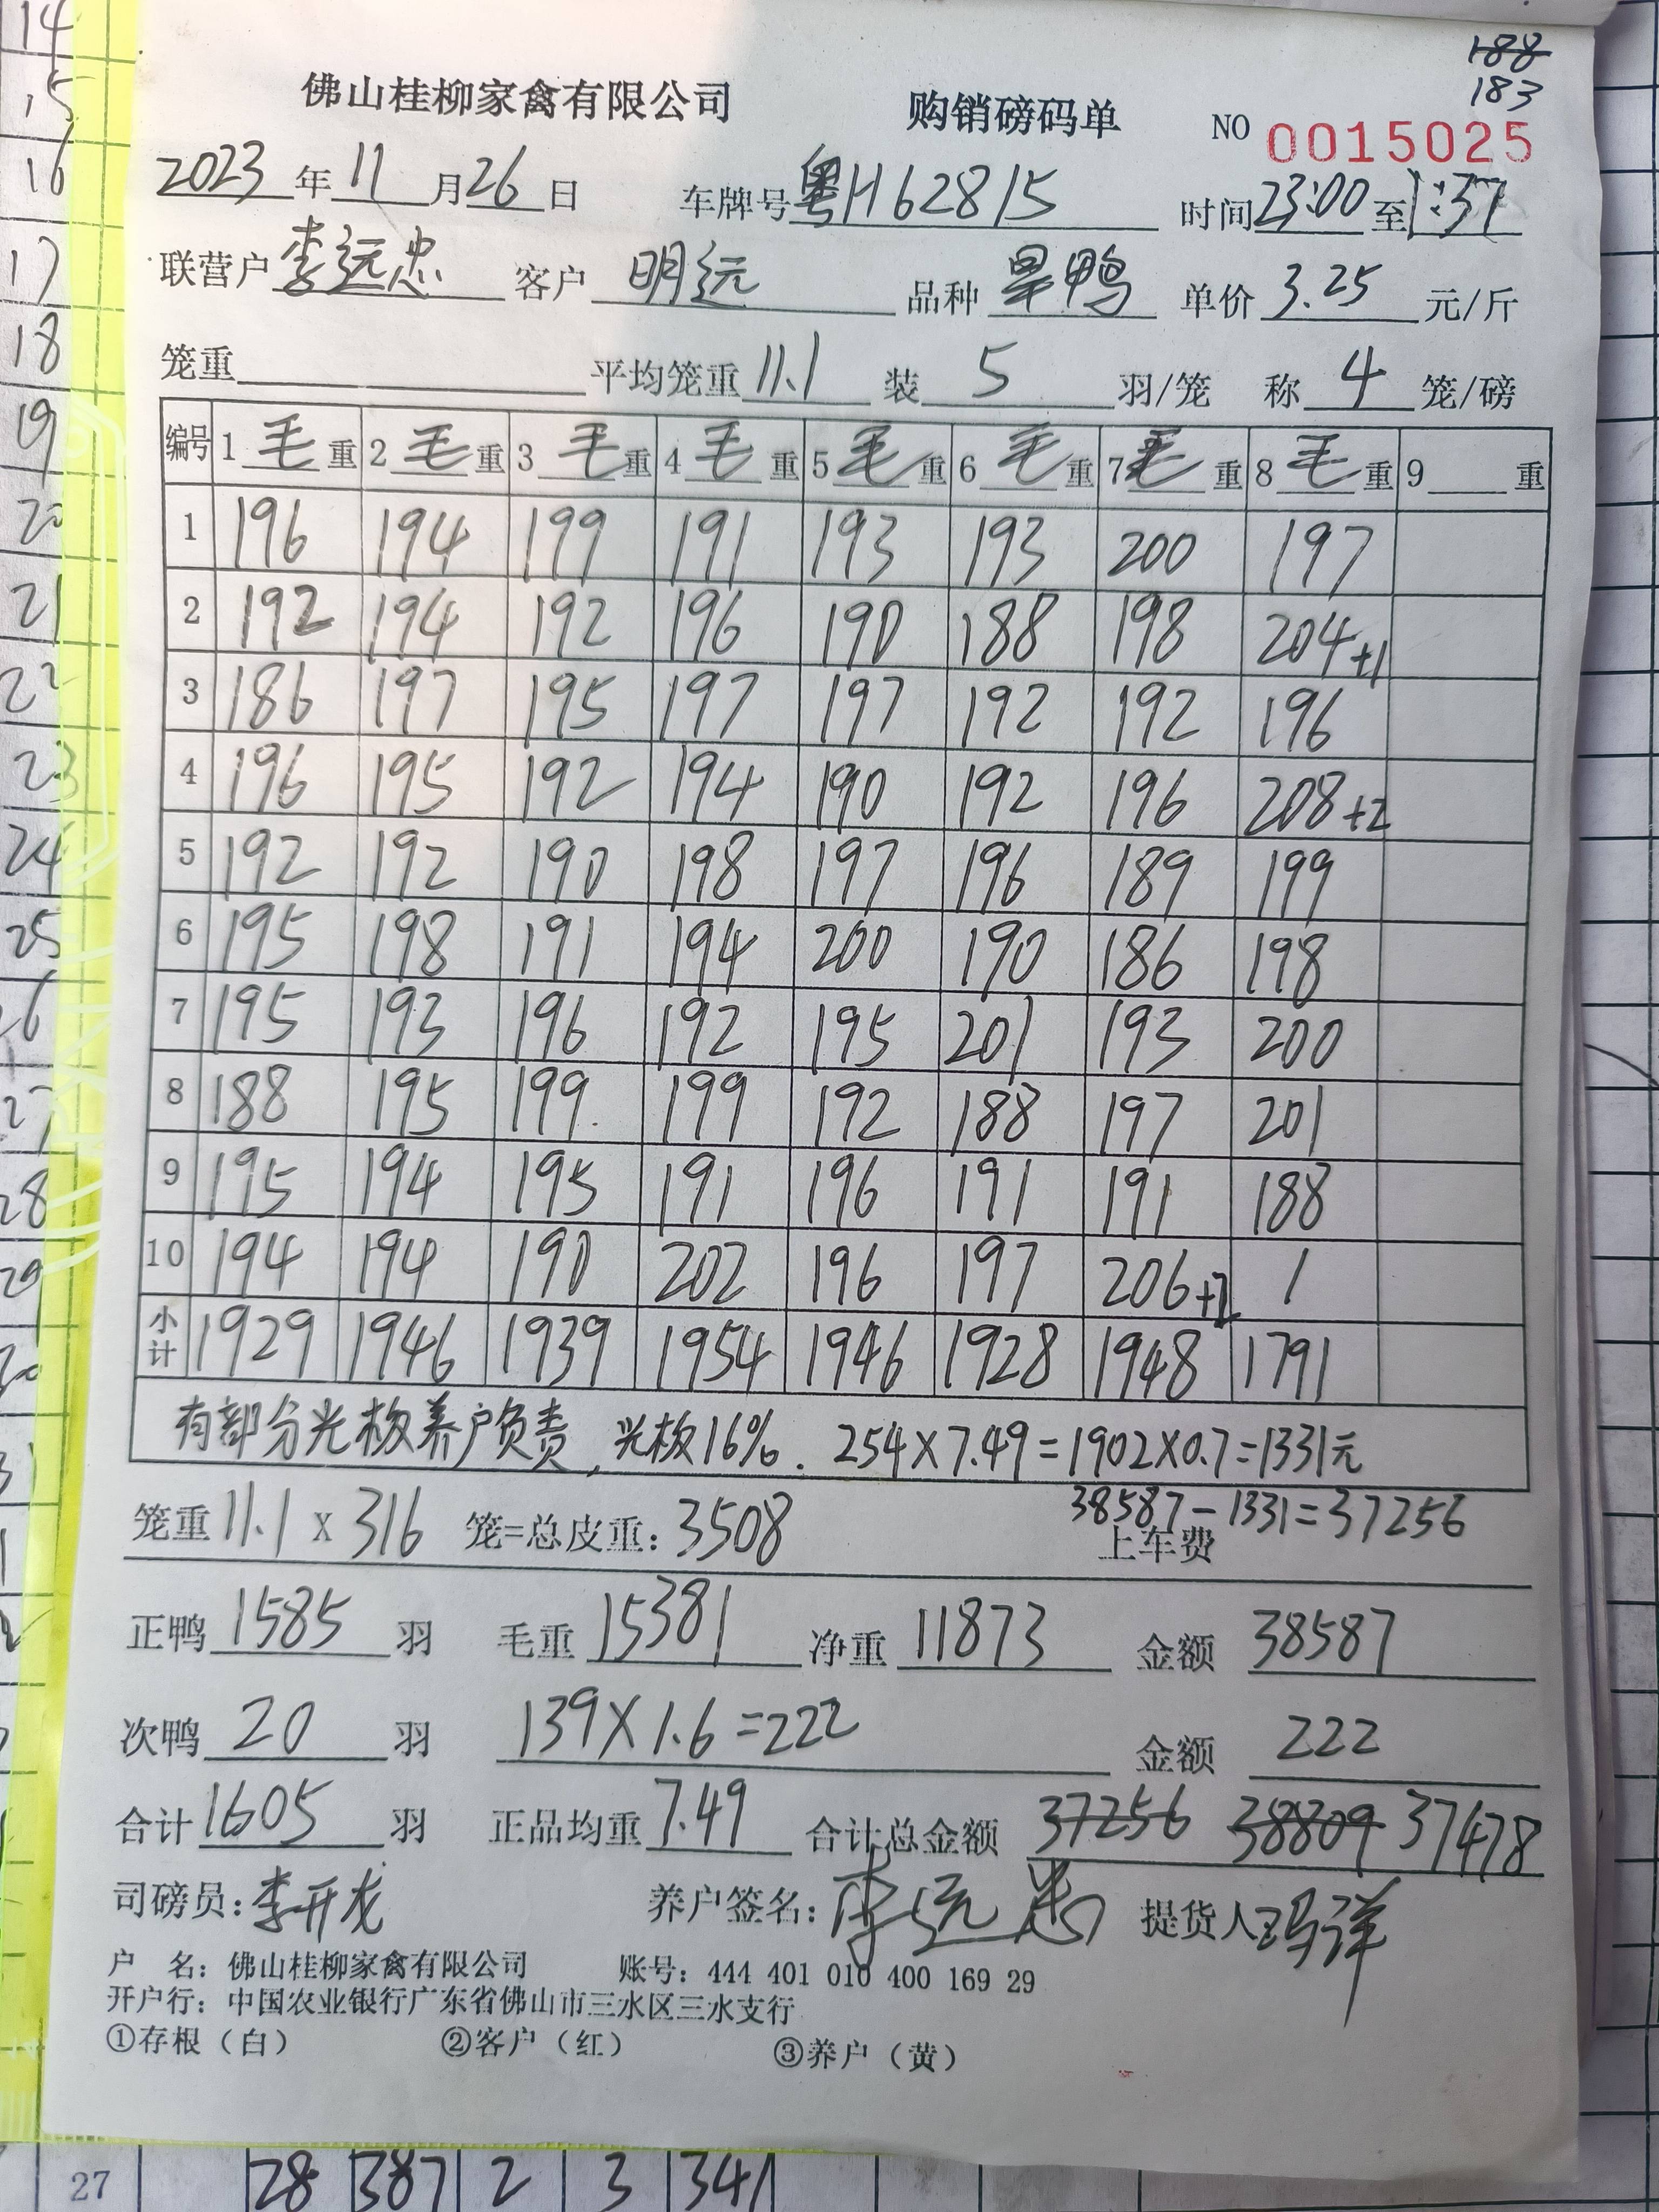 188
183
佛山桂柳家禽有限公司 购销磅码单 NO 0015025
2023年11月26日 车牌号粤H62815 时间23:00至1:37
联营户李远忠 客户明远 品种旱鸭 单价3.25元/斤
笼重 平均笼重11.1 装5羽/笼 称4笼/磅
编号 1毛重 2毛重 3毛重 4毛重 5毛重 6毛重 7毛重 8毛重 9 重
1 196 194 199 191 193 193 200 197
2 192 194 192 196 190 188 198 204+1
3 186 197 195 197 197 192 192 196
4 196 195 192 194 190 192 196 208+2
5 192 192 190 198 197 196 189 199
6 195 198 191 194 200 190 186 198
7 195 193 196 192 195 201 193 200
8 188 195 199 199 192 188 197 201
9 195 194 195 191 196 191 191 188
10 194 194 190 202 196 197 206+2 1
小计 1929 1946 1939 1954 1946 1928 1948 1791
有部分光板养户负责,光板16%. 254×7.49=1902×0.7=1331元
38587-1331=37256
笼重11.1 x 316 笼=总皮重:3508 上车费
正鸭1585羽 毛重15381 净重11873 金额38587
次鸭20羽 139×1.6=222 金额222
合计1605羽 正品均重7.49 合计总金额 37256 38809 37478
司磅员:李开龙 养户签名:李远忠 提货人
户 名:佛山桂柳家禽有限公司 账号:444 401 010 400 169 29
开户行:中国农业银行广东省佛山市三水区三水支行
①存根(白) ②客户(红) ③养户(黄)
14
15
16
17
18
19
20
21
22
23
24
25
28
29
27 28 387 2 3 341